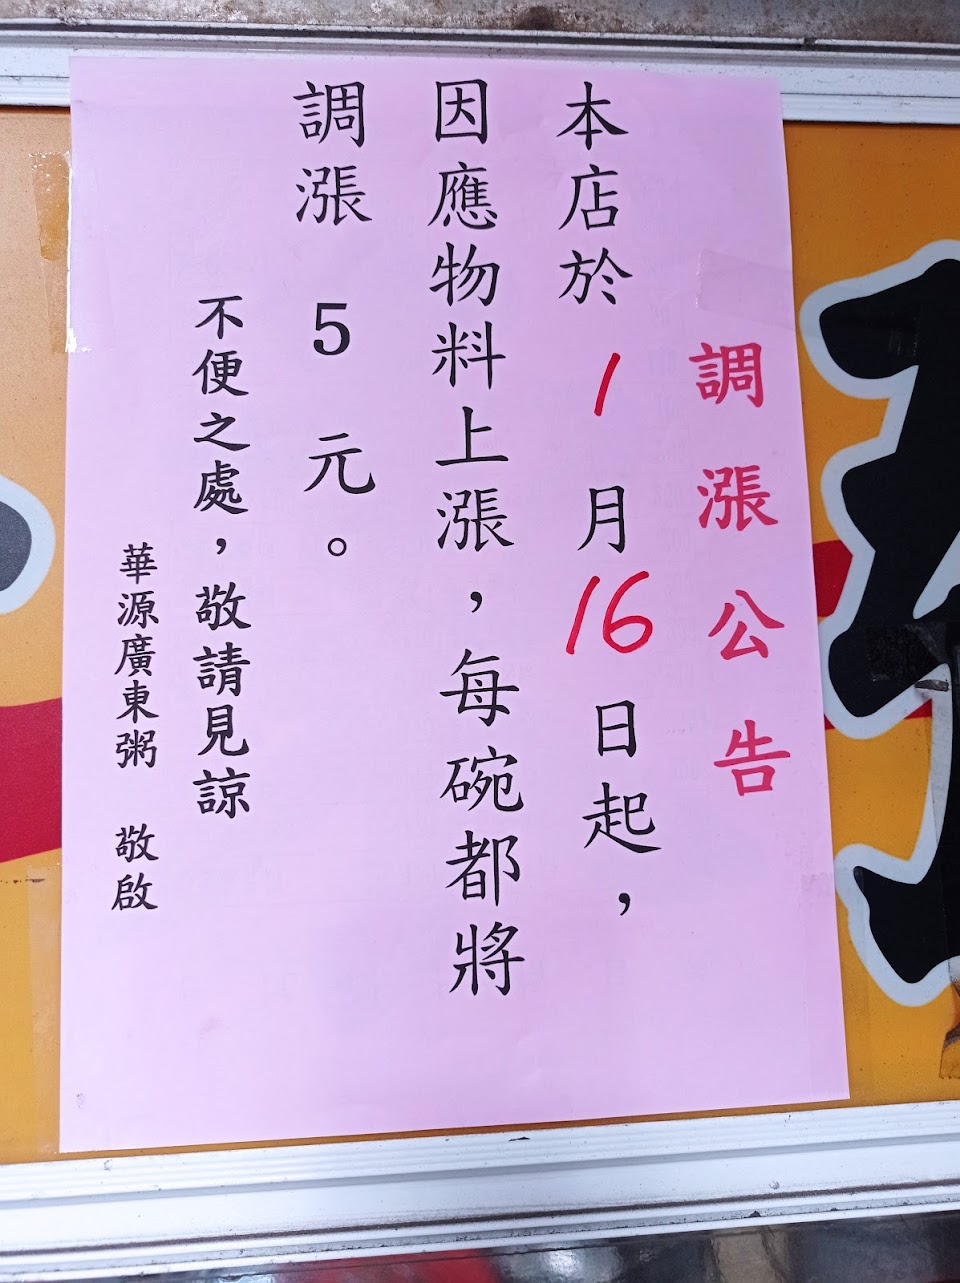 調漲公告
本店於1月16日起，
因應物料上漲，每碗都將
調漲5元。
不便之處，敬請見諒
華源廣東粥 敬啟